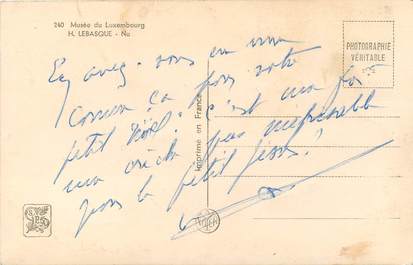 240 Musée du Luxembourg
H. LEBASQUE - Nu
PHOTOGRAPHIE
VÉRITABLE
Imprimé en France
En avez-vous eu une
comme ça pour votre
petit Noël. c'est ma foi
une crèche pas méprisable
pour le petit Jésus!